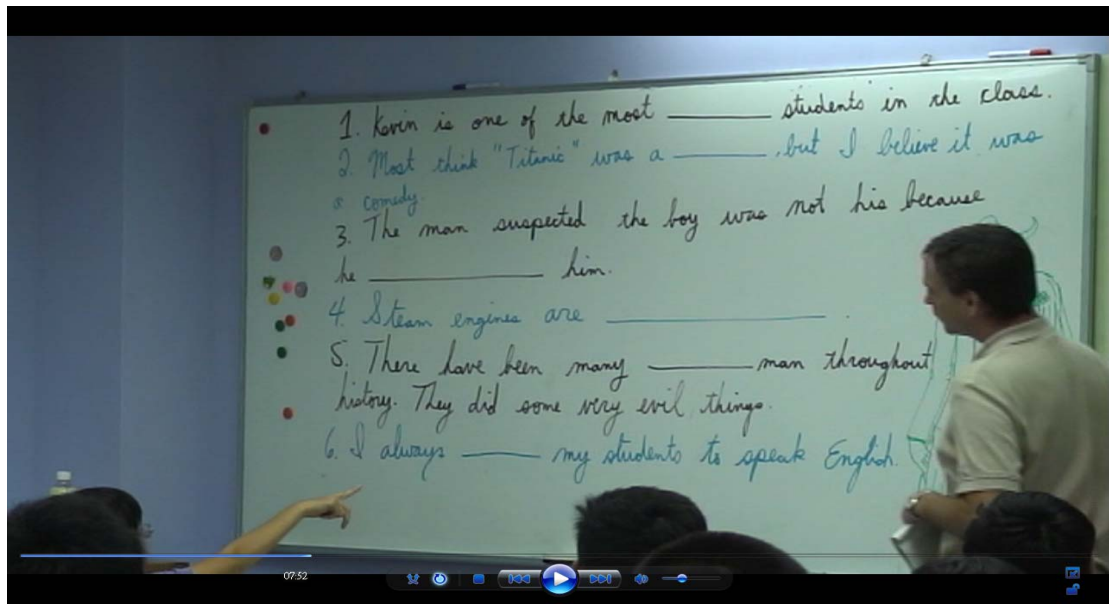 1. Kevin is one of the most ______ students in the class.
2. Most think "Titanic" was a ______, but I believe it was
a comedy.
3. The man suspected the boy was not his because
he ______ him.
4. Steam engines are ______.
5. There have been many ______ man throughout
history. They did some very evil things.
6. I always ______ my students to speak English.
07:52